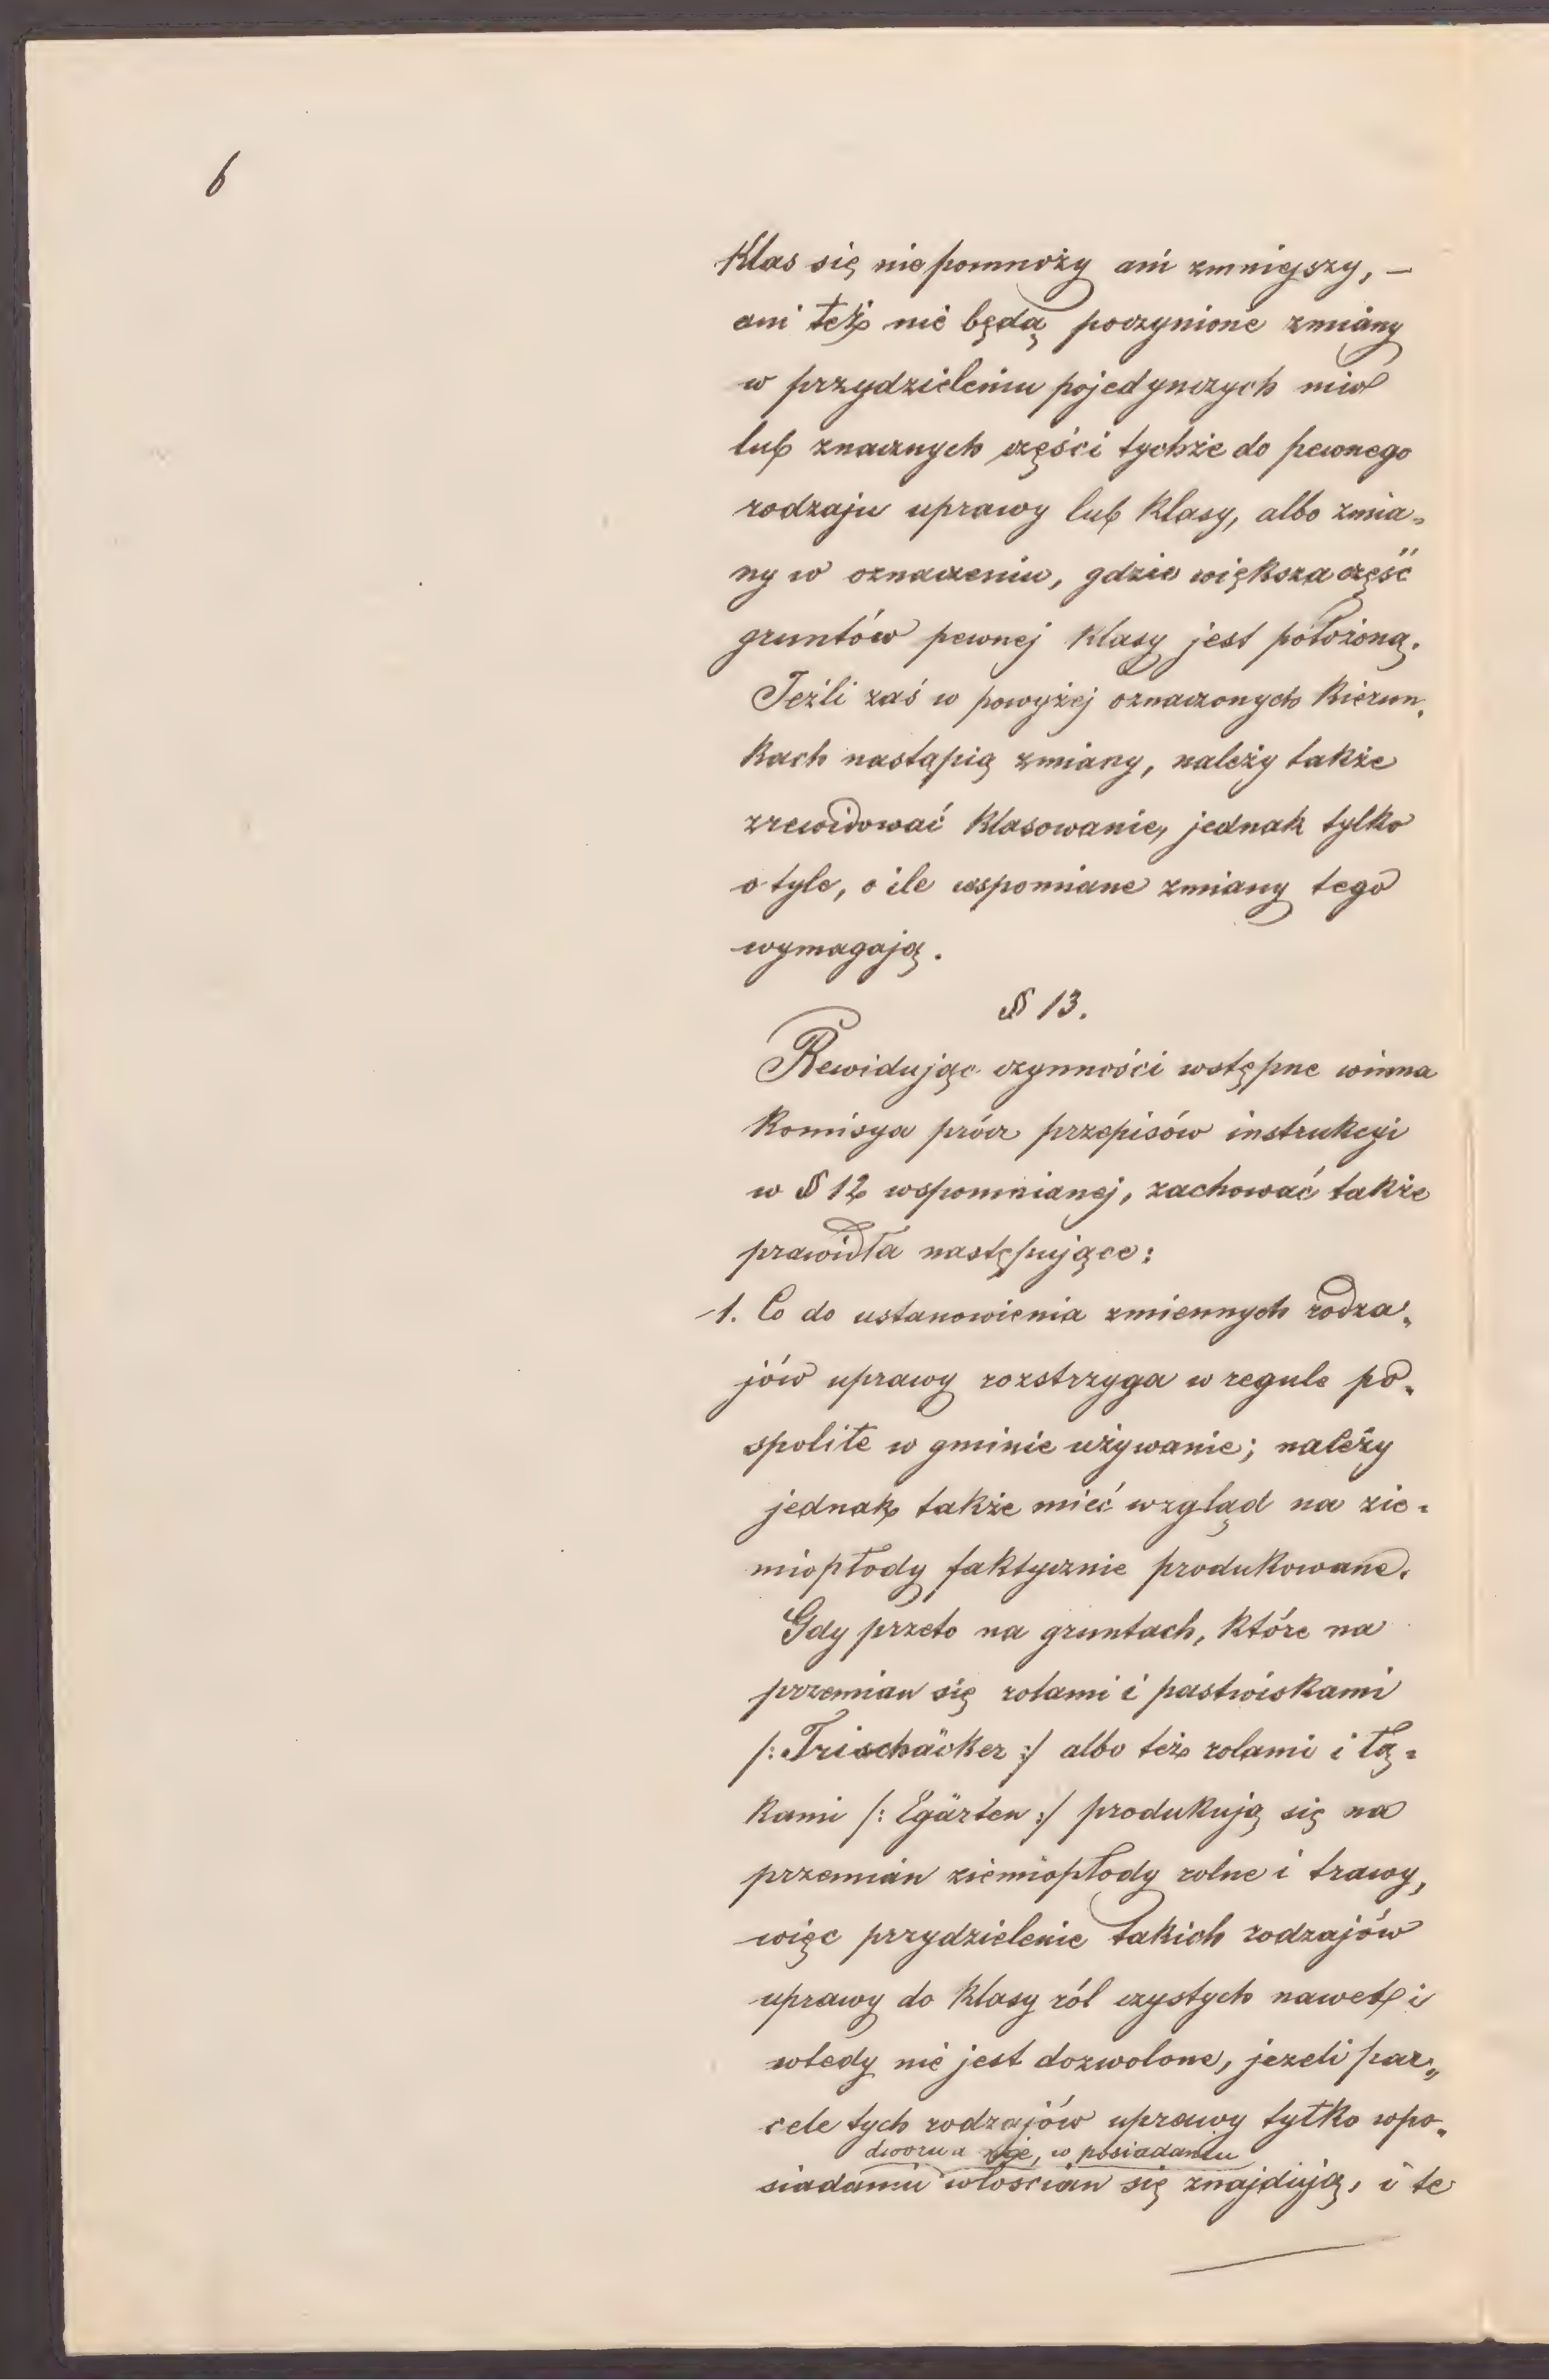 6
Klas się nie pomnoży ani zmniejszy, —
ani też nie będą poczynione zmiany
w przydzieleniu pojedynczych niw
lub znacznych części tychże do pewnego
rodzaju uprawy lub klasy, albo zmia-
ny w oznaczeniu, gdzie większa część
gruntów pewnej klasy jest położoną.
Jeźli zaś w powyżej oznaczonych kierun-
kach nastąpią zmiany, należy także
zrewidować klasowanie, jednak tylko
o tyle, o ile wspomniane zmiany tego
wymagają.
§ 13.
Rewidując czynności wstępne winna
Komisya prócz przepisów instrukcyi
w § 12 wspomnianej, zachować także
prawidła następujące:
1. Co do ustanowienia zmiennych rodza-
jów uprawy rozstrzyga w regule po-
spolite w gminie używanie; należy
jednak także mieć wzgląd na zie-
miopłody faktycznie produkowane.
Gdy przeto na gruntach, które na
przemian się rolami i pastwiskami
/: Trischäcker :/ albo też rolami i łą-
kami /: Egärten :/ produkują się na
przemian ziemiopłody rolne i trawy,
więc przydzielenie takich rodzajów
uprawy do klasy ról czystych nawet i
wtedy nie jest dozwolone, jezeli par-
cele tych rodzajów uprawy tylko w po-
dworu a nie, w posiadaniu
siadaniu włościan się znajdują, i te